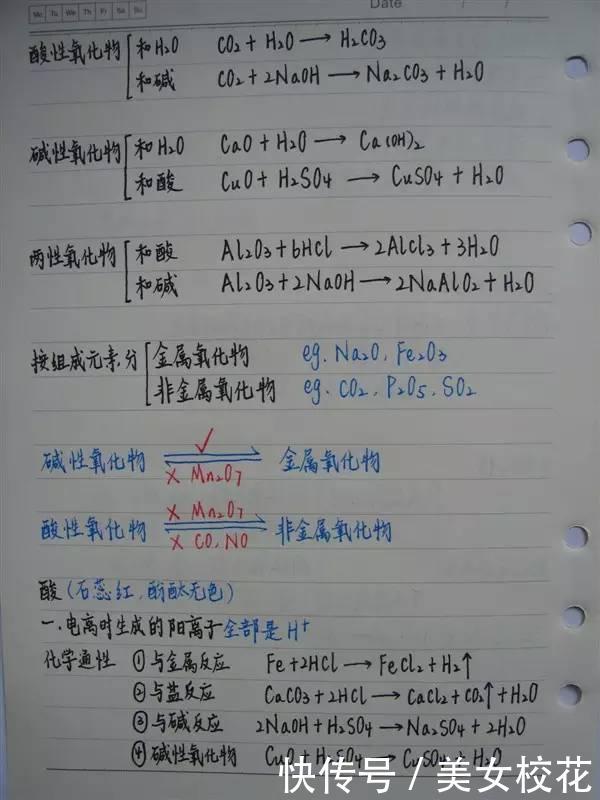 Mo Tu We Th Fr Sa Su Date / /
酸性氧化物 和H2O CO2 + H2O → H2CO3
和碱 CO2 + 2NaOH → Na2CO3 + H2O
碱性氧化物 和H2O CaO + H2O → Ca(OH)2
和酸 CuO + H2SO4 → CuSO4 + H2O
两性氧化物 和酸 Al2O3 + 6HCl → 2AlCl3 + 3H2O
和碱 Al2O3 + 2NaOH → 2NaAlO2 + H2O
按组成元素分 金属氧化物 eg. Na2O, Fe2O3
非金属氧化物 eg. CO2, P2O5, SO2
✓
碱性氧化物 ⇌ 金属氧化物
× Mn2O7
× Mn2O7
酸性氧化物 ⇌ 非金属氧化物
× CO, NO
酸 (石蕊红, 酚酞无色)
一. 电离时生成的阳离子全部是H+
化学通性 ①与金属反应 Fe + 2HCl → FeCl2 + H2↑
②与盐反应 CaCO3 + 2HCl → CaCl2 + CO2↑ + H2O
③与碱反应 2NaOH + H2SO4 → Na2SO4 + 2H2O
④碱性氧化物 CuO + H2SO4 → CuSO4 + H2O
快传号 / 美女校花